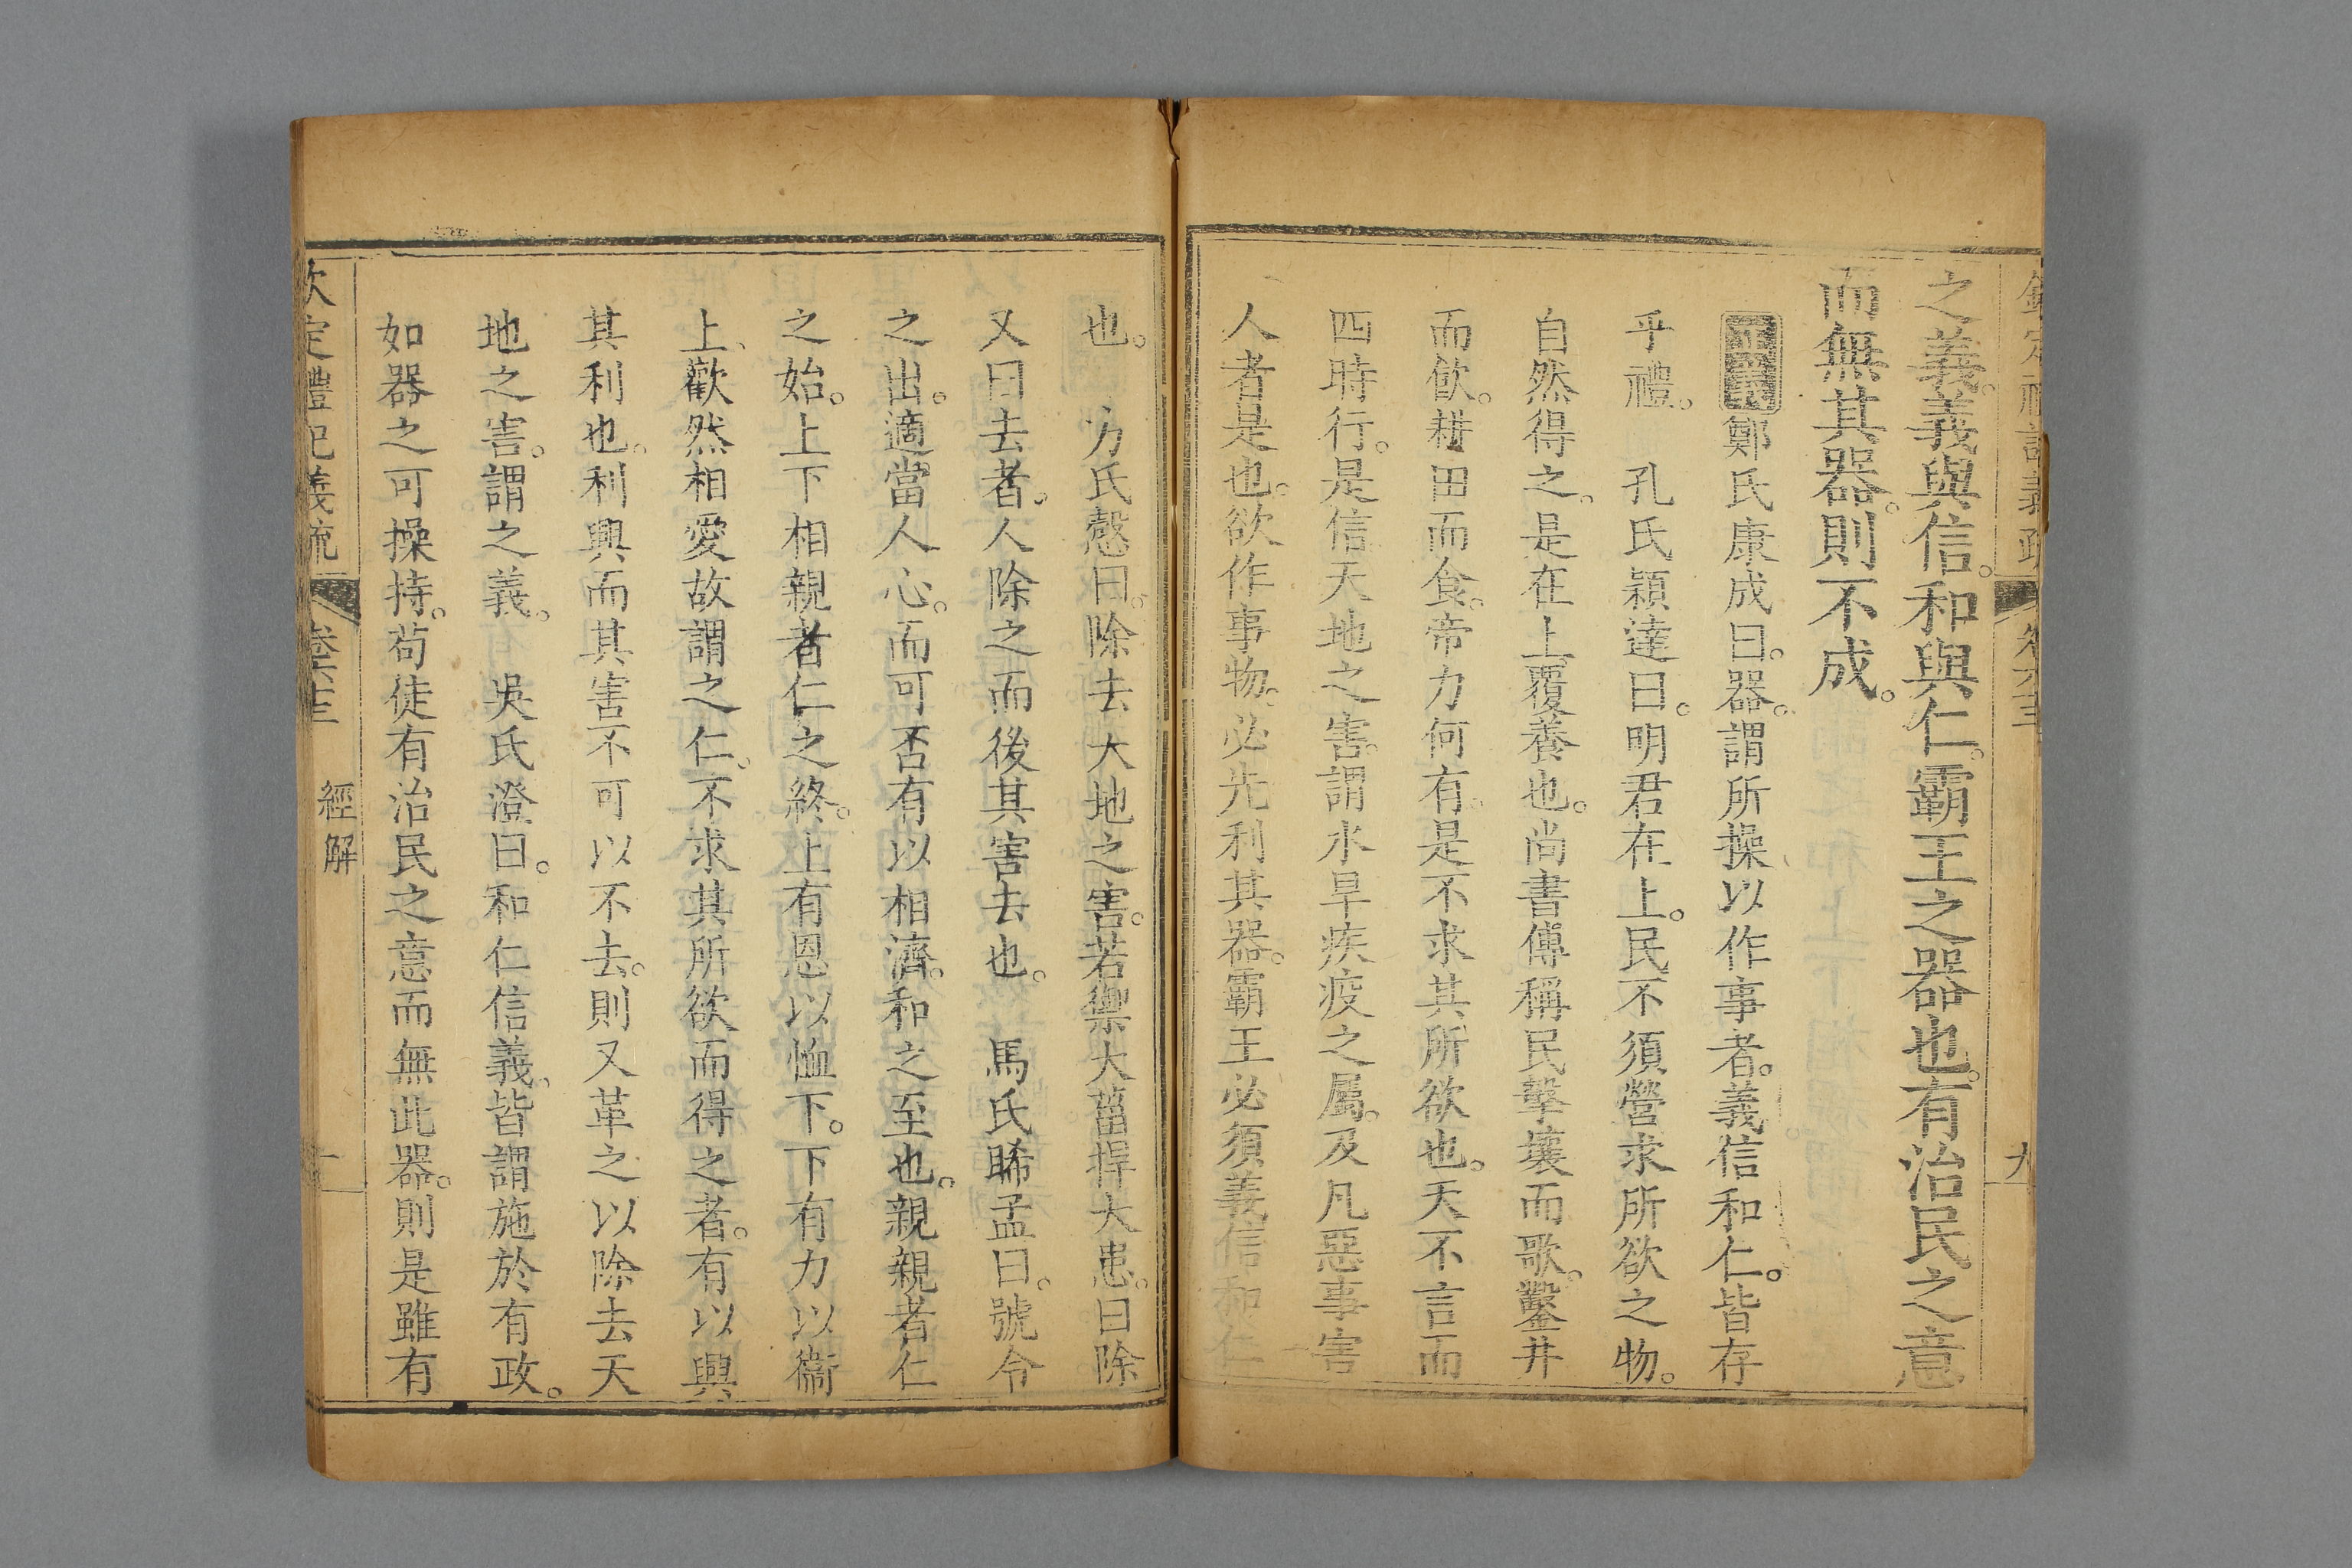 欽定禮記義疏 卷六十三 九
之義。義與信。和與仁。霸王之器也。有治民之意
而無其器。則不成。
正義鄭氏康成曰。器。謂所操以作事者。義信和仁。皆存
乎禮。 孔氏穎達曰。明君在上。民不須營求所欲之物。
自然得之。是在上覆養也。尚書傳稱民擊壤而歌。鑿井
而飲。耕田而食。帝力何有。是不求其所欲也。天不言而
四時行。是信天地之害。謂水旱疾疫之屬。及凡惡事害
人者是也。欲作事物。必先利其器。霸王必須義信和仁
也。 方氏慤曰。除去大地之害。若禦大菑捍大患。曰除
又曰去者。人除之而後其害去也。 馬氏睎孟曰。號令
之出。適當人心。而可否有以相濟。和之至也。親親者仁
之始。上下相親者仁之終。上有恩以恤下。下有力以衞
上、歡然相愛故謂之仁。不求其所欲而得之者。有以興
其利也。利興而其害不可以不去。則又革之以除去天
地之害。謂之義。 吳氏澄曰。和仁信義。皆謂施於有政。
如器之可操持。苟徒有治民之意而無此器。則是雖有
欽定禮記義疏 卷六十三 經解